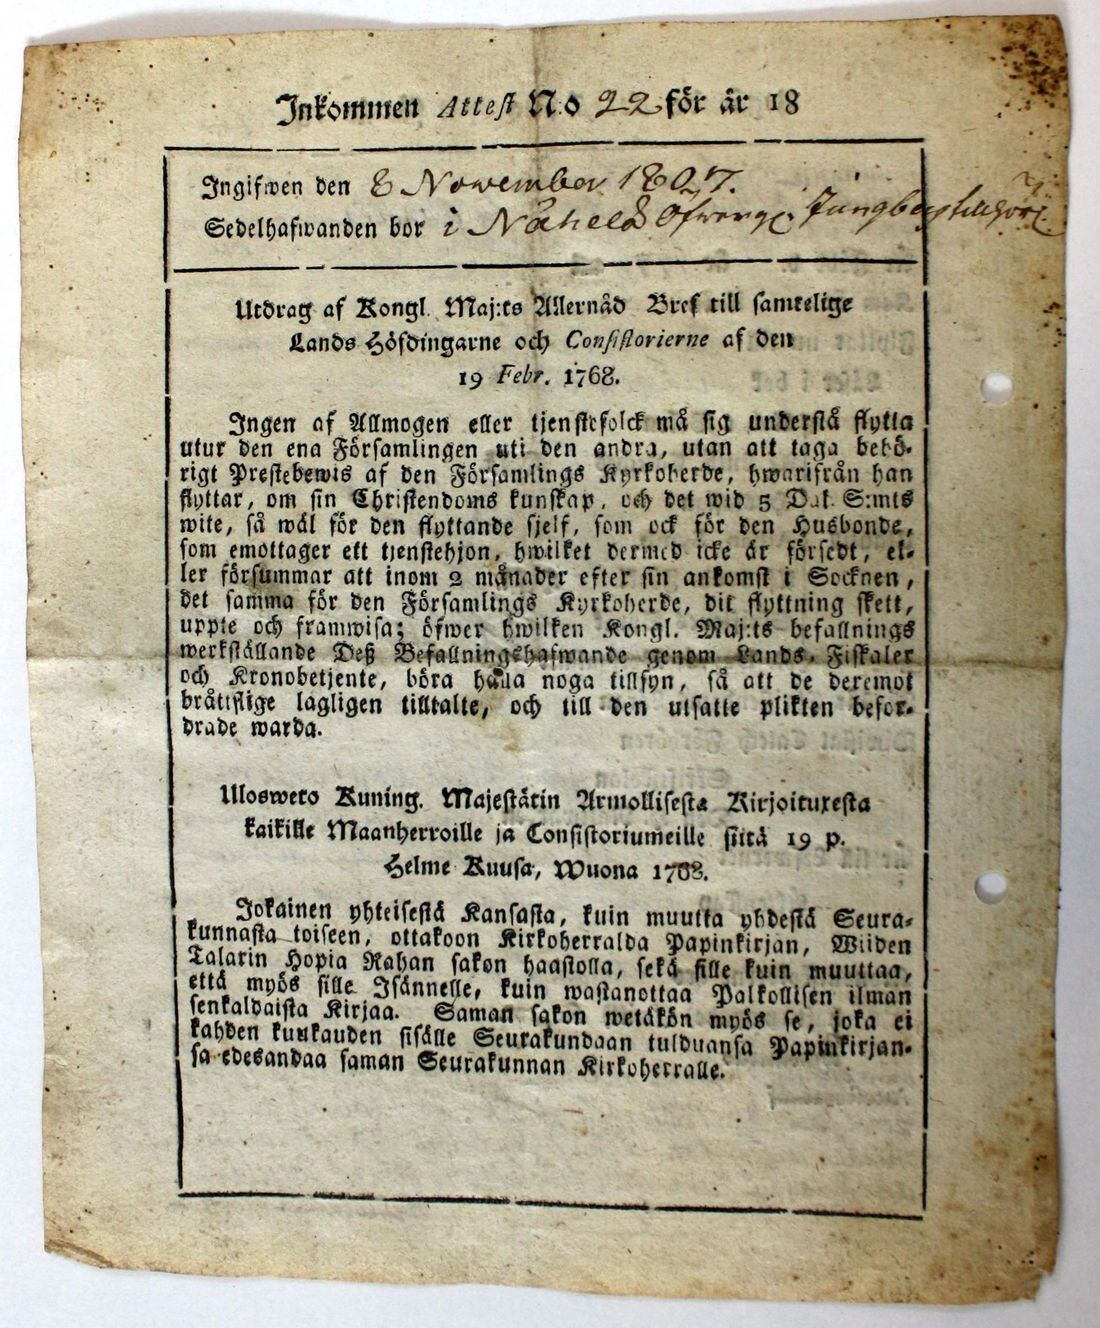 Inkommen Attest N:o 22 för år 18
Ingifwen den 8 November 1827.
Sedelhafwanden bor i
Utdrag af Kongl. Maj:ts Allernåd Bref till samtelige
Lands Höfdingarne och Consistorierne af den
19 Febr. 1768.
Ingen af Allmogen eller tjenstefolck må sig understå flytta
utur den ena Församlingen uti den andra, utan att taga behö-
rigt Prestebewis af den Församlings Kyrkoherde, hwarifrån han
flyttar, om sin Christendoms kunskap, och det wid 5 Dal. S:mts
wite, så wäl för den flyttande sjelf, som ock för den Husbonde,
som emottager ett tjenstehjon, hwilket dermed icke är försedt, el-
ler försummar att inom 2 månader efter sin ankomst i Socknen,
det samma för den Församlings Kyrkoherde, dit flyttning skett,
uppte och framwisa; öfwer hwilken Kongl. Maj:ts befallnings
werkställande Deß Befallningshafwande genom Lands-Fiskaler
och Kronobetjente, böra hålla noga tillsyn, så att de deremot
bråttslige lagligen tilltalte, och till den utsatte plikten befor-
drade warda.
Ulosweto Kuning. Majestätin Armollisesta Kirjoituxesta
kaikille Maanherroille ja Consistoriumeille siitä 19 p.
Helme Kuusa, Wuona 1768.
Jokainen yhteisestä Kansasta, kuin muutta yhdestä Seura-
kunnasta toiseen, ottakoon Kirkoherralda Papinkirjan, Wiiden
Talarin Hopia Rahan sakon haastolla, sekä sille kuin muuttaa,
että myös sille Isännelle, kuin wastanottaa Palkollisen ilman
senkaldaista Kirjaa. Saman sakon wetäkön myös se, joka ei
kahden kuukauden sisälle Seurakundaan tulduansa Papinkirjan-
sa edesandaa saman Seurakunnan Kirkoherralle.